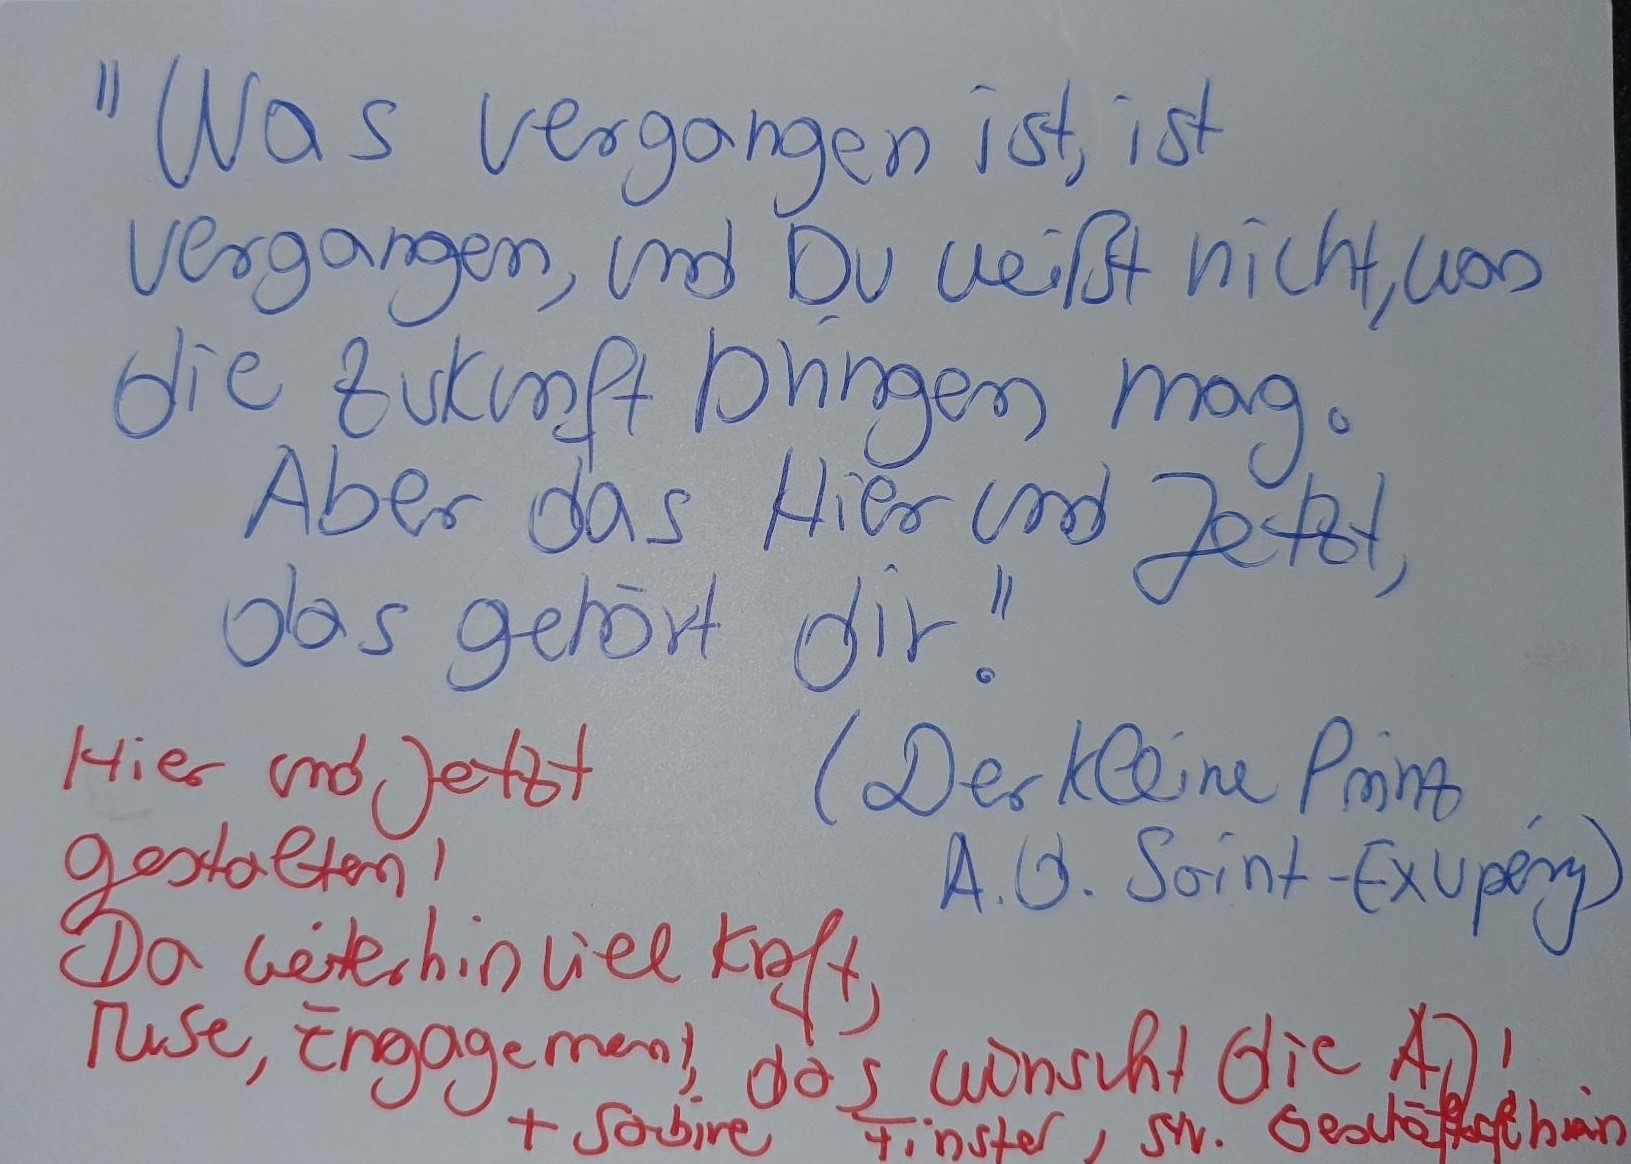 "Was vergangen ist, ist
vergangen, und Du weißt nicht, was
die Zukunft bringen mag.
Aber das Hier und Jetzt,
das gehört dir!"
(Der kleine Prinz
A.d. Saint-Exupéry)
Hier und Jetzt
gestalten!
Da weiterhin viel Kraft,
Muse, Engagement, das wünscht die
+ Sabine Finster, stv.